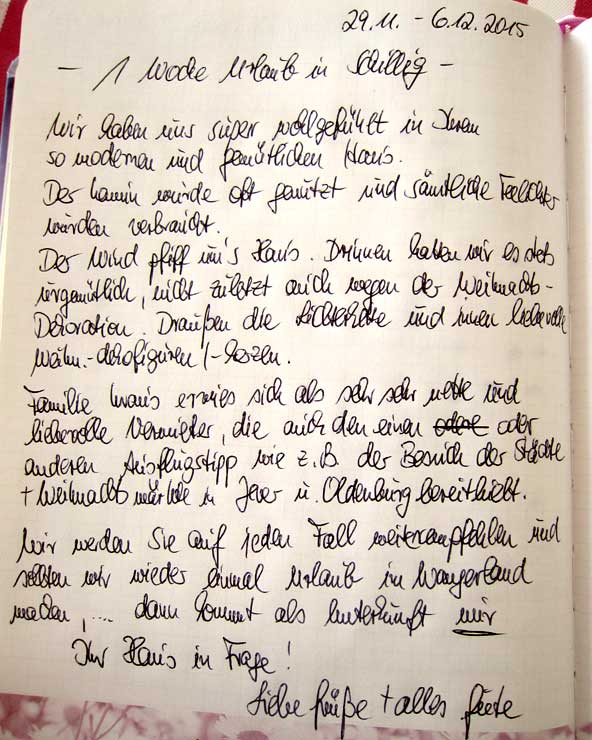 29.11. - 6.12.2015
- 1 Woche Urlaub in Schillig -
Wir haben uns super wohlgefühlt in Ihrem
so modernen und gemütlichen Haus.
Der Kamin wurde oft genutzt und sämtliche Teelichter
wurden verbraucht.
Der Wind pfiff um's Haus. Drinnen hatten wir es stets
urgemütlich, nicht zuletzt auch wegen der Weihnachts-
Dekoration. Draußen die Lichterkette und innen liebevolle
Weihn.-dekofiguren/-kerzen.
Familie Kraus erwies sich als sehr sehr nette und
liebevolle Vermieter, die auch den einen oder
anderen Ausflugstipp wie z.B. der Besuch der Städte
+ Weihnachtsmärkte in Jever u. Oldenburg bereithielt.
Wir werden Sie auf jeden Fall weiterempfehlen und
sollten wir wieder einmal Urlaub im Wangerland
machen, .... dann kommt als Unterkunft nur
Ihr Haus in Frage!
Liebe Grüße + alles Gute